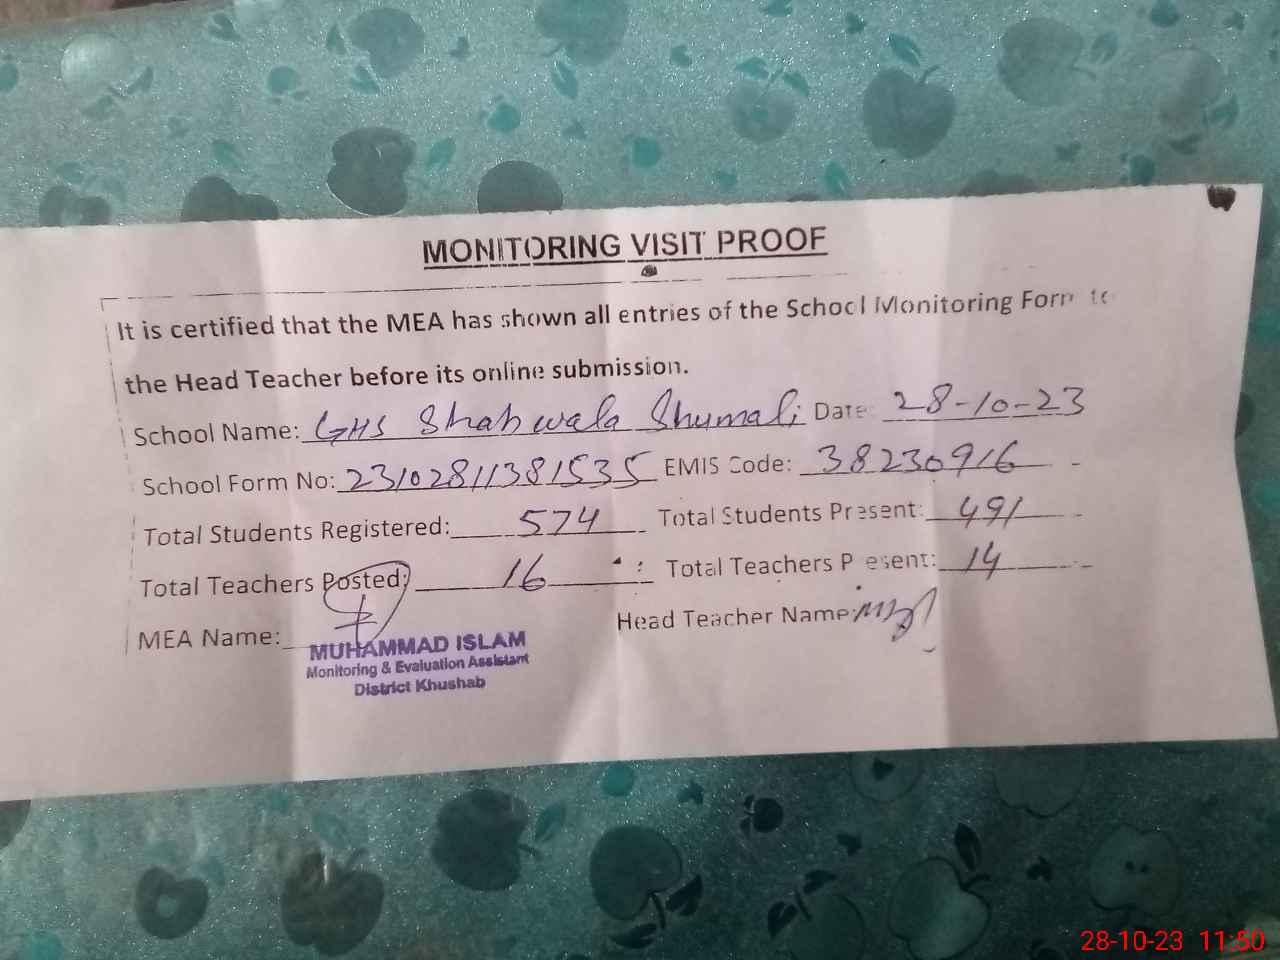 MONITORING VISIT PROOF
It is certified that the MEA has shown all entries of the School Monitoring Form to
the Head Teacher before its online submission.
School Name: GHS Shah wala Shumali Date: 28-10-23
School Form No: 23102811381535 EMIS Code: 38230916
Total Students Registered: 574 Total Students Present: 491
Total Teachers Posted: 16 Total Teachers Present: 14
MEA Name: Head Teacher Name:
MUHAMMAD ISLAM
Monitoring & Evaluation Assistant
District Khushab
28-10-23 11:50